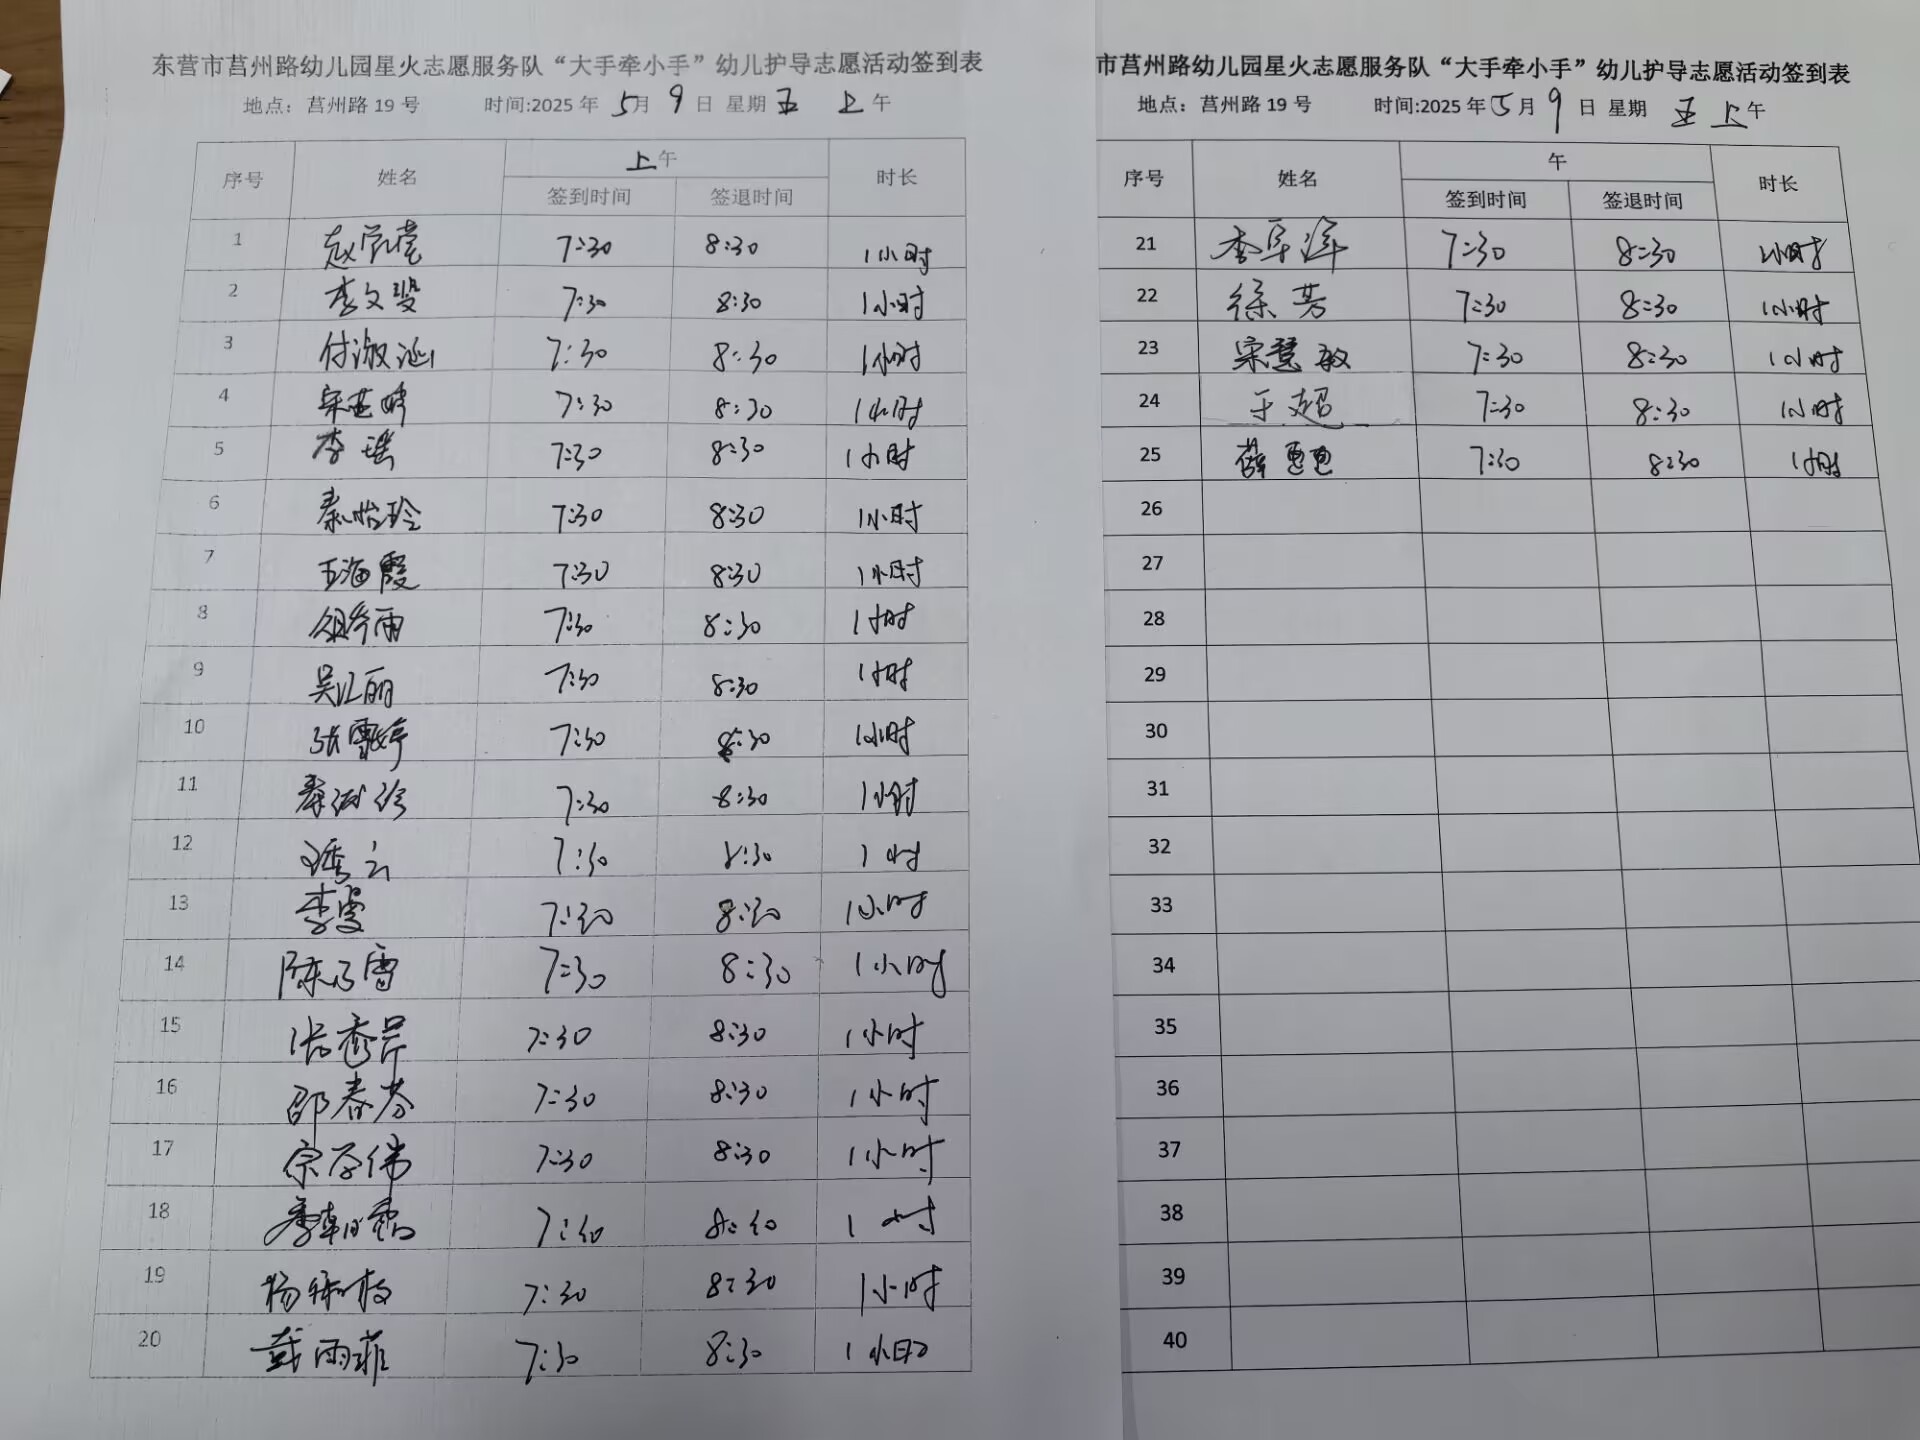 东营市莒州路幼儿园星火志愿服务队“大手牵小手”幼儿护导志愿活动签到表
地点：莒州路 19 号 时间:2025 年 5月 9 日 星期 五 上 午
序号 姓名 上午 时长
签到时间 签退时间
1 7:30 8:30 1小时
2 李文斐 7:30 8:30 1小时
3 付淑 7:30 8:30 1小时
4 7:30 8:30 1小时
5 李瑶 7:30 8:30 1小时
6 秦怡玲 7:30 8:30 1小时
7 王海霞 7:30 8:30 1小时
8 雨 7:30 8:30 1小时
9 吴江丽 7:30 8:30 1小时
10 张雪婷 7:30 8:30 1小时
11 7:30 8:30 1小时
12 7:30 8:30 1小时
13 李雯 7:30 8:30 1小时
14 陈乃雷 7:30 8:30 1小时
15 张秀芹 7:30 8:30 1小时
16 邵春芬 7:30 8:30 1小时
17 宗学伟 7:30 8:30 1小时
18 7:40 8:40 1小时
19 杨 枝 7:30 8:30 1小时
20 戴雨菲 7:30 8:30 1小时
市莒州路幼儿园星火志愿服务队“大手牵小手”幼儿护导志愿活动签到表
地点：莒州路 19 号 时间:2025 年 5 月 9 日 星期 五 上 午
序号 姓名 午 时长
签到时间 签退时间
21 7:30 8:30 1小时
22 徐芳 7:30 8:30 1小时
23 宋慧敏 7:30 8:30 1小时
24 于超 7:30 8:30 1小时
25 薛惠惠 7:30 8:30 1小时
26
27
28
29
30
31
32
33
34
35
36
37
38
39
40